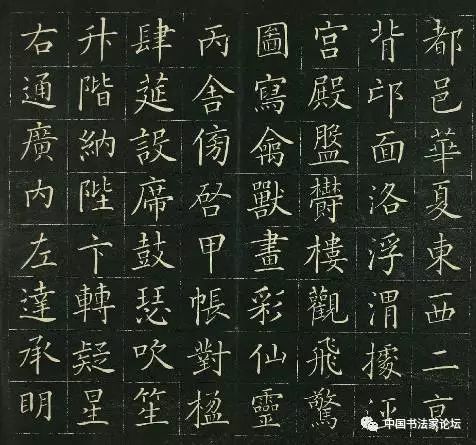 都邑華夏東西二京
背邙面洛浮渭據涇
宮殿盤欝樓觀飛驚
圖寫禽獸畫彩仙靈
丙舍傍啓甲帳對楹
肆筵設席鼓瑟吹笙
升階納陛卞轉疑星
右通廣内左達承明
中国书法家论坛